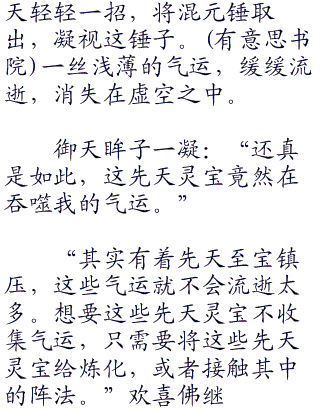 天轻轻一招，将混元锤取
出，凝视这锤子。(有意思书
院)一丝浅薄的气运，缓缓流
逝，消失在虚空之中。
御天眸子一凝：“还真
是如此，这先天灵宝竟然在
吞噬我的气运。”
“其实有着先天至宝镇
压，这些气运就不会流逝太
多。想要这些先天灵宝不收
集气运，只需要将这些先天
灵宝给炼化，或者接触其中
的阵法。”欢喜佛继